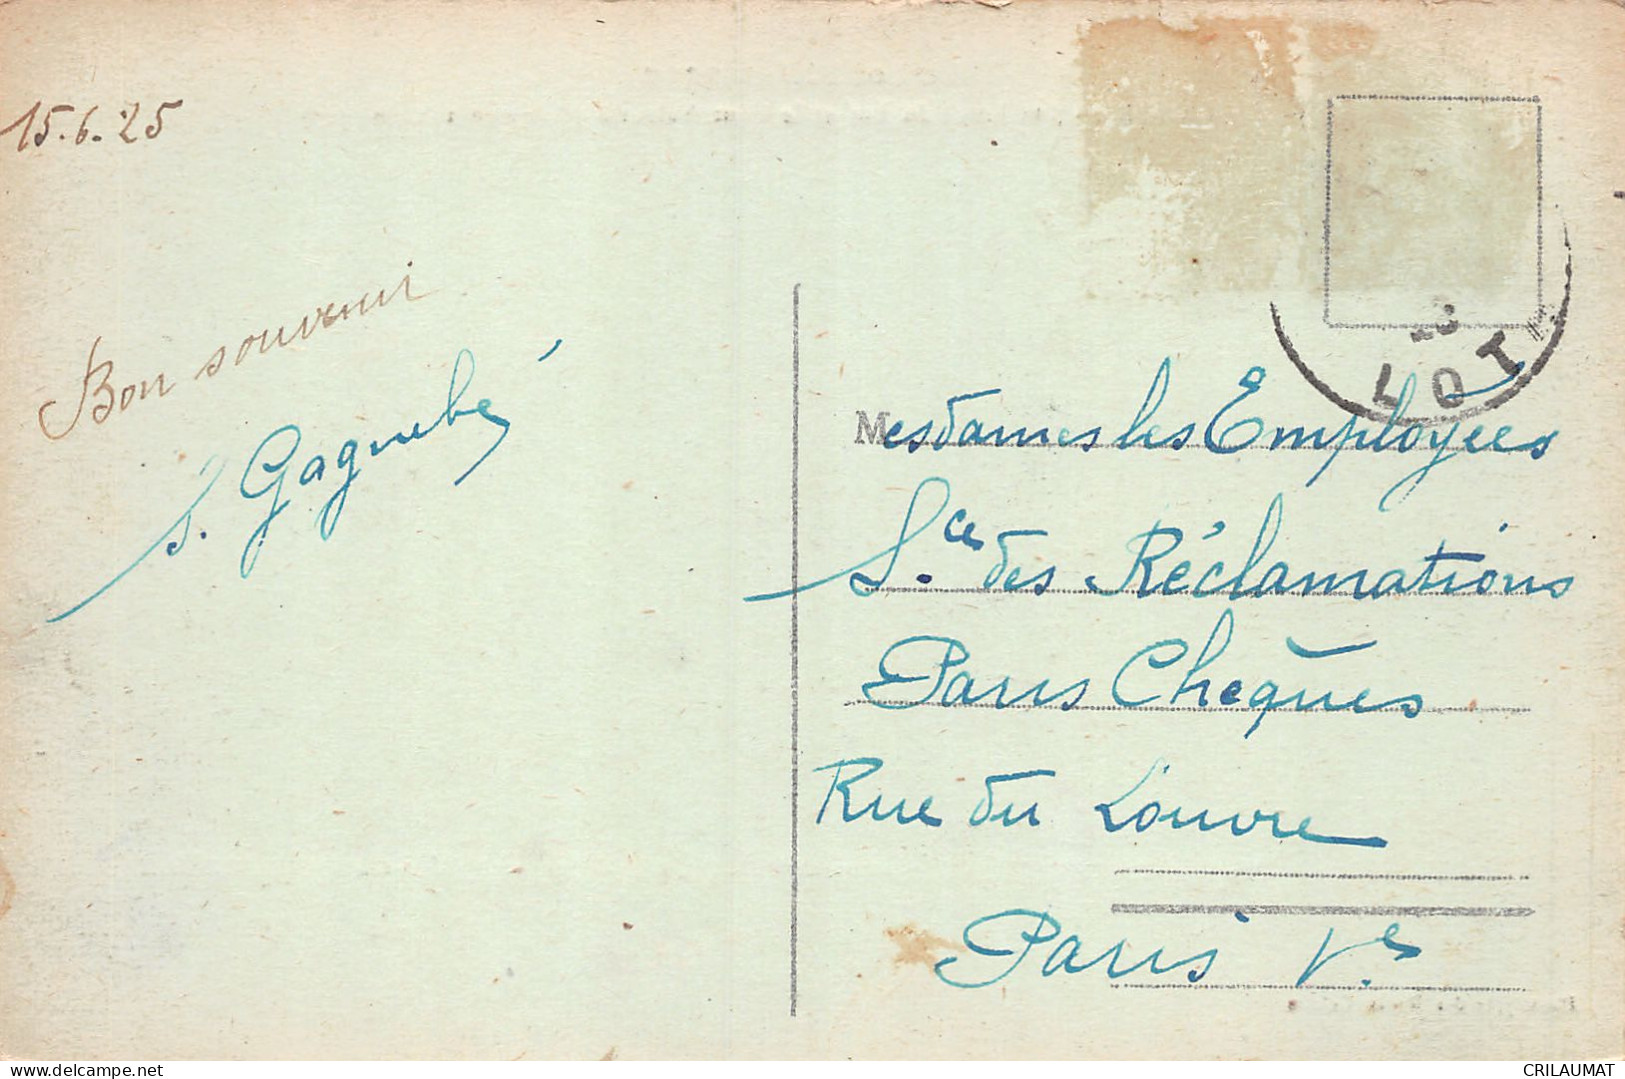 15.6.25
Bon souvenir
S. Gagnebé
LOT
Mesdames les Employées
S.ce des Réclamations
Paris Chèques
Rue du Louvre
Paris V.e
https://www.delcampe.net
CRILAUMAT